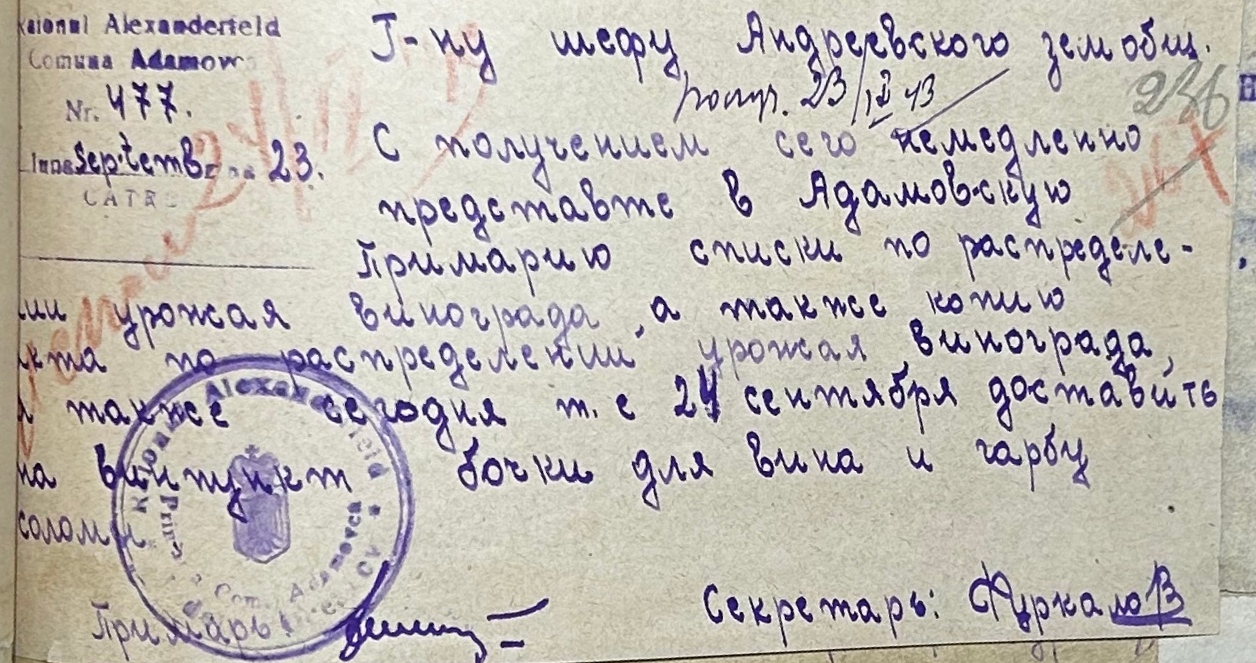 Raionul Alexanderfeld
Comuna Adamovca
Nr. 477.
Septembrie 23.
CĂTRE
Г-ну шефу Андреевского земобщ.
23/IX 43
236
С получением сего немедленно
представте в Адамовскую
Примарию списки по распределе-
нии урожая винограда, а также копию
акта по распределении урожая винограда,
а также сегодня т. е 24 сентября доставить
на винпункт бочки для вина и гарбу
соломы.
Alexanderfeld
Com. Adamovca
Примарь:
Секретарь: Фуркало В